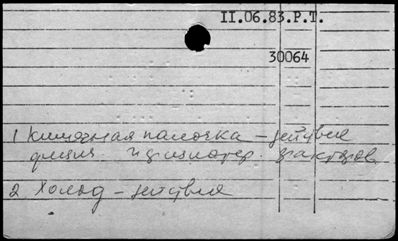 II.06.83.P.T.
30064
1 Кишечная палочка – действие
физич. и физиотер. факторов
2 Холод – действие